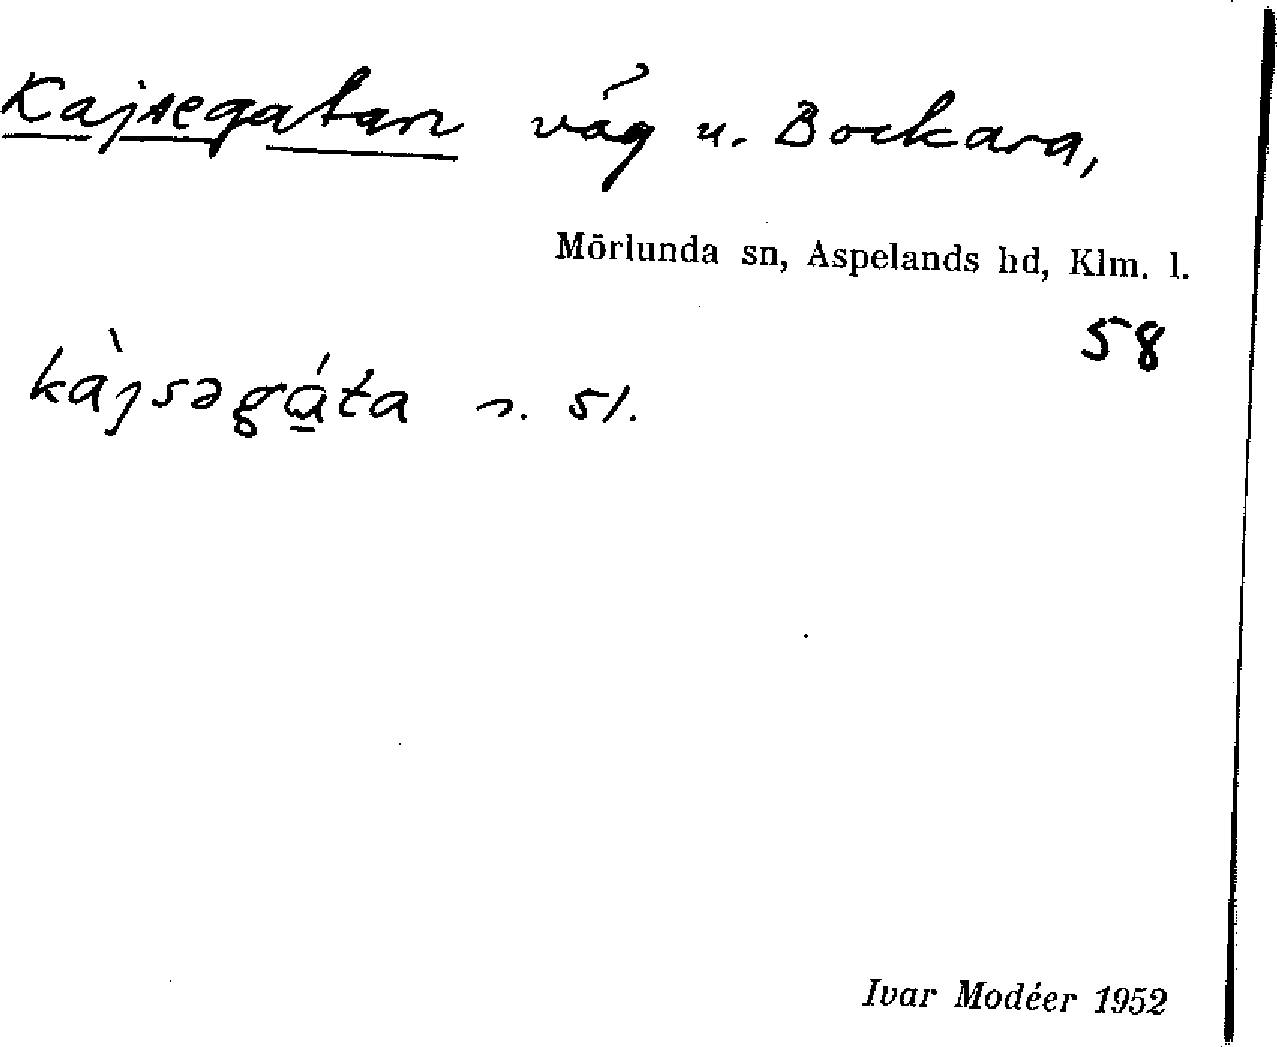 Kajsegatan väg u. Bockara,
Mörlunda sn, Aspelands hd, Klm. l.
58
kàjsəgáta s. 51.
Ivar Modéer 1952